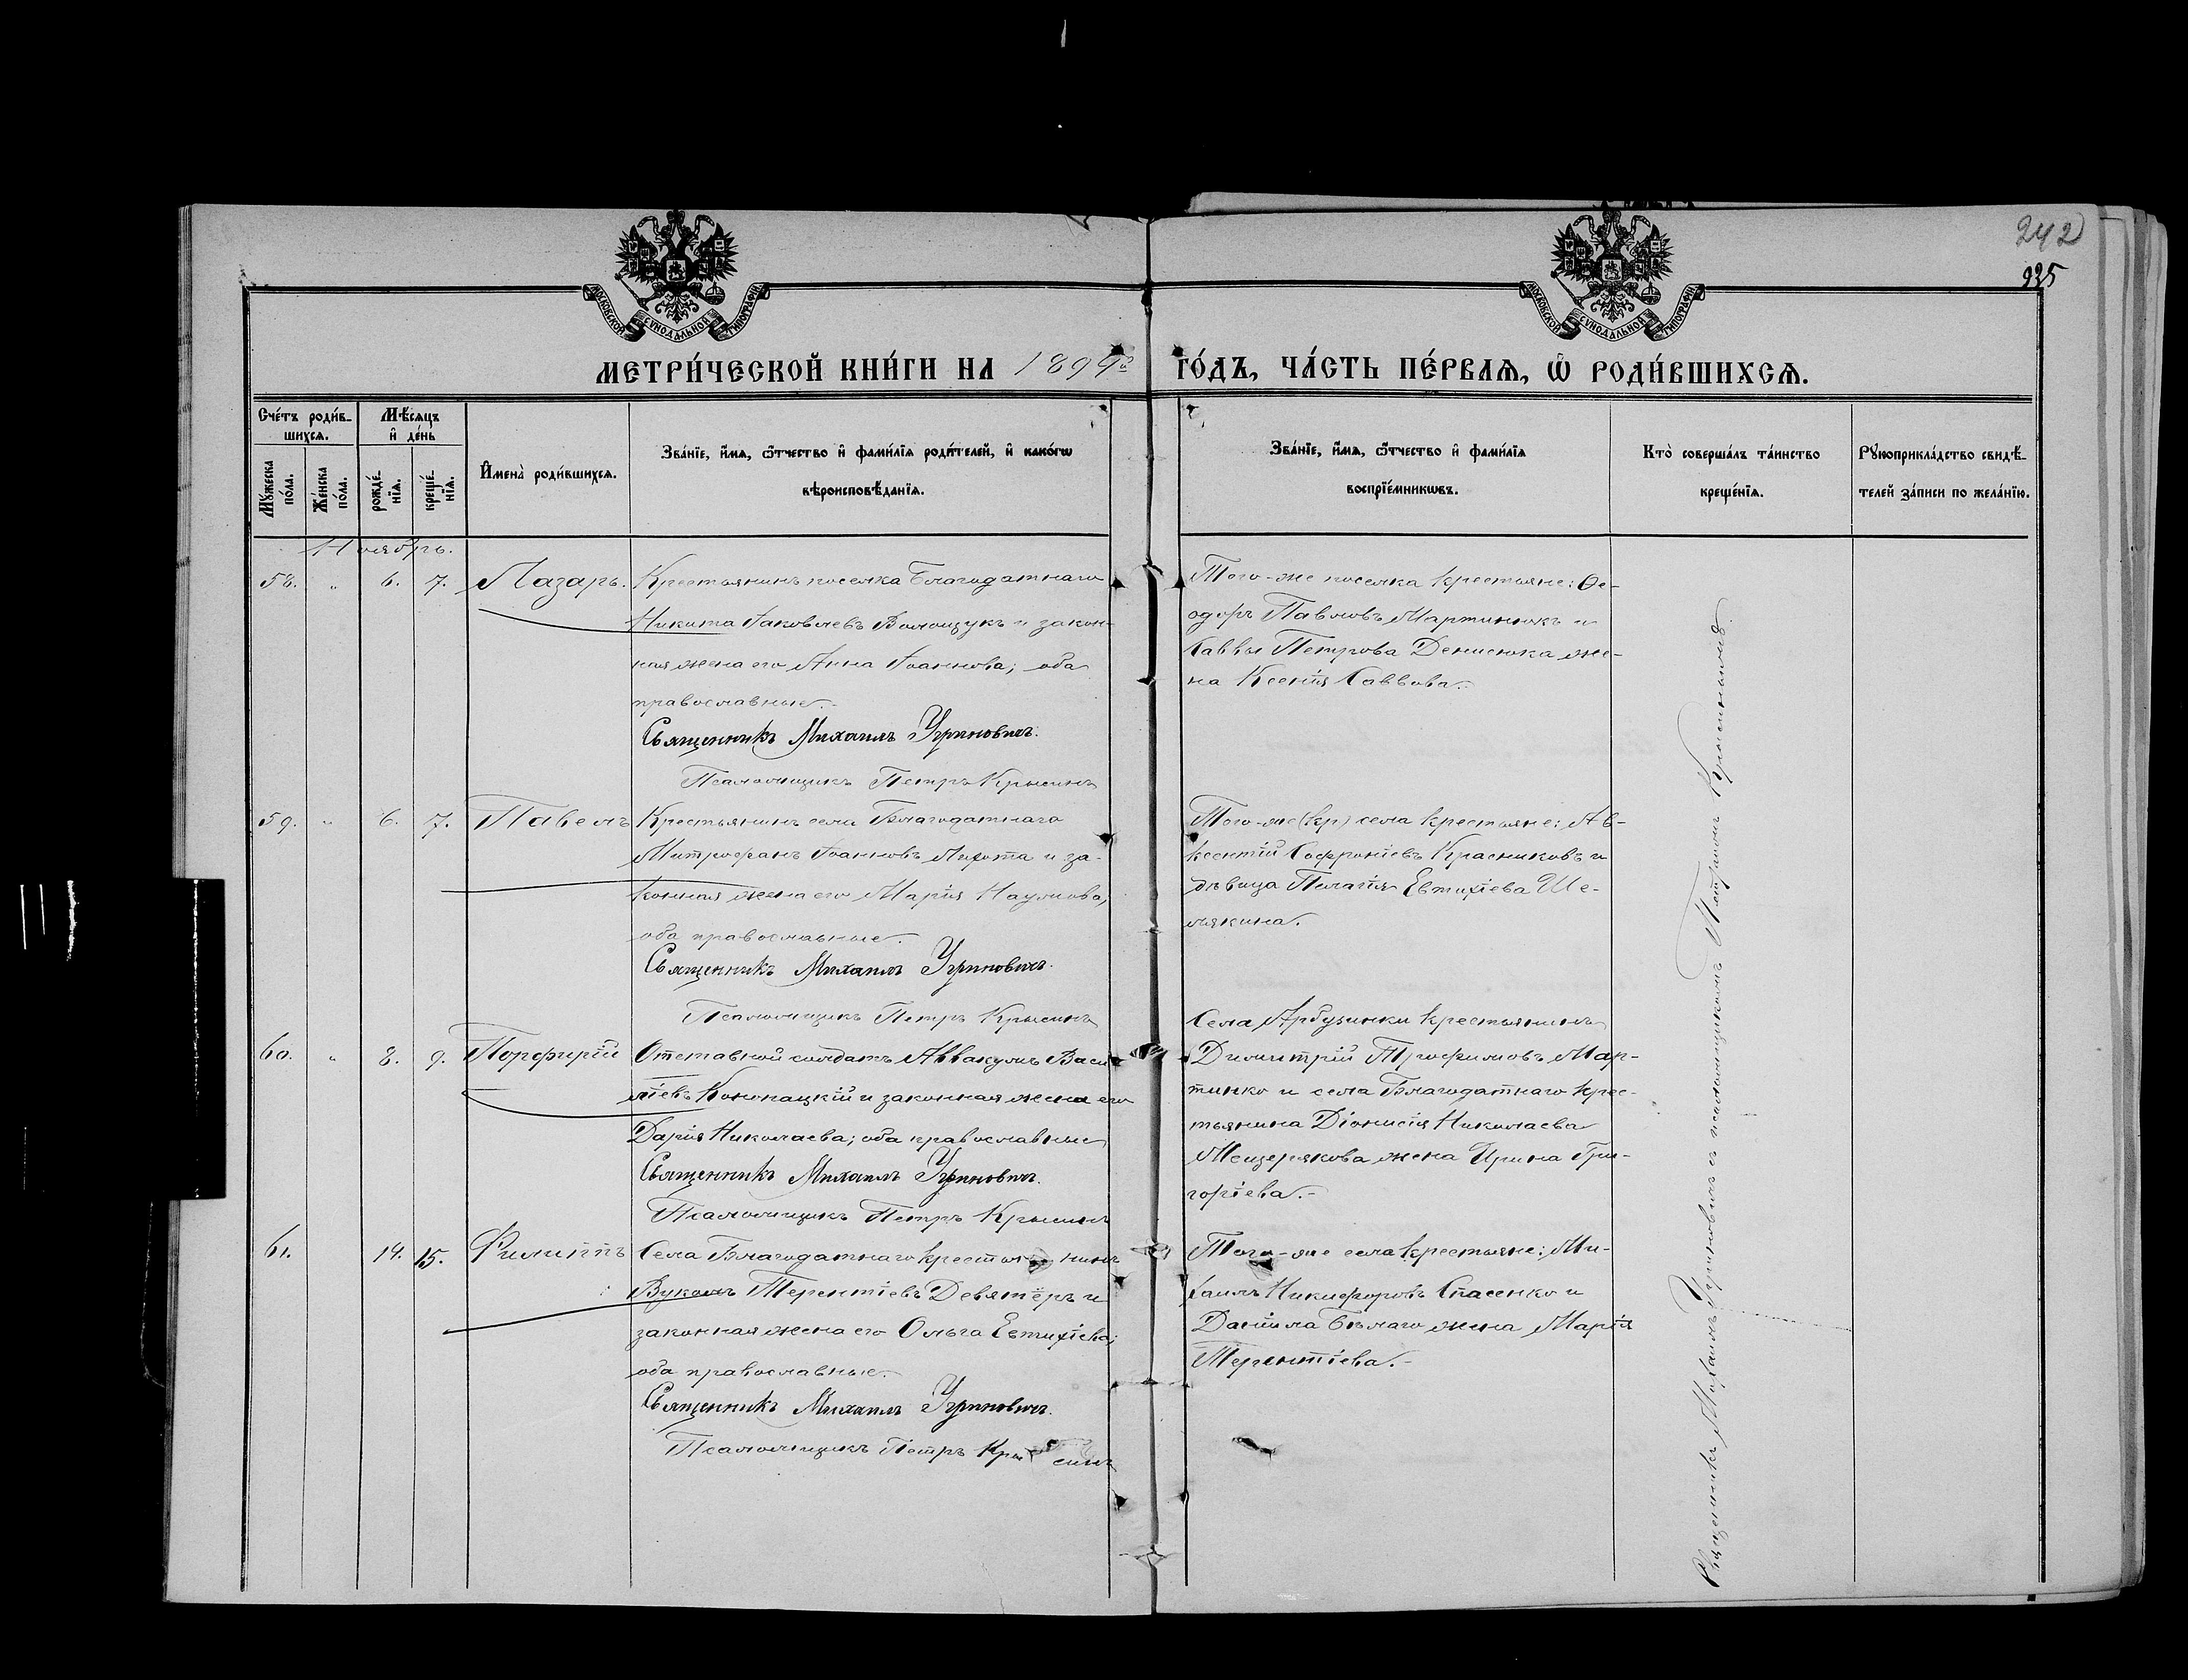 242
935
МОСКОВСКОЙ СѴНОДАЛЬНОЙ ТИПОГРАФІИ
МОСКОВСКОЙ СѴНОДАЛЬНОЙ ТИПОГРАФІИ
МЕТРИ́ЧЕСКОЙ КНИ́ГИ НА 1899й ГО́ДЪ, ЧА́СТЬ ПЕ́РВАѦ, Ѡ҆ РОДИ́ВШИХСѦ.
Сче́тъ роди́в-
шихсѧ.
Мꙋжеска по́ла.
Же́нска по́ла.
Мѣ́сѧцъ
и҆ де́нь
рожде́-
нїѧ.
креще́-
нїѧ.
И҆мена̀ роди́вшихсѧ.
Зва́нїе, и҆́мѧ, ѻ҆́тчество и҆ фами́лїѧ роди́телей, и҆ како́гѡ
вѣроисповѣ́данїѧ.
Зва́нїе, и҆́мѧ, ѻ҆́тчество и҆ фами́лїѧ
воспрїе́мникѡвъ.
Кто̀ соверша́лъ та́инство
креще́нїѧ.
Рꙋкоприкла́дство свидѣ́-
телей за́писи по жела́нїю.
Ноябрь.
58. " 6. 7. Лазарь.
Крестьянинъ поселка Благодатнаго
Никита Іаковлевъ Волощукъ и закон-
ная жена его Анна Іоаннова; оба
православные.-
Священникъ Михаилъ Угриновичъ.
Псаломщикъ Петръ Крысинъ
Того-же поселка крестьяне: Ѳе-
одоръ Павловъ Мартинюкъ и
Саввы Петрова Денисюка же-
на Ксенія Саввова.-
59. " 6. 7. Павелъ
Крестьянинъ села Благодатнаго
Митрофанъ Іоанновъ Лихота и за-
конная жена его Марія Наумова;
оба православные.
Священникъ Михаилъ Угриновичъ.
Псаломщикъ Петръ Крысинъ
Того-же (кр) села крестьяне: Ав-
ксентій Софроніевъ Красниковъ и
дѣвица Пелагія Евтихіева Ше-
лякина.
60. " 8. 9. Порфирій
Отставной солдатъ Аввакумъ Васи-
ліевъ Конокацкій и законная жена его
Дарія Николаева; оба православные
Священникъ Михаилъ Угриновичъ.
Псаломщикъ Петръ Крысинъ
Села Арбузинки крестьянинъ
Димитрій Трофимовъ Мар-
тинко и села Благодатнаго крес-
тьянина Діонисія Николаева
Мещерякова жена Ирина Гри-
горіева.-
61. 14. 15. Филиппъ
Села Благодатнаго крестьянинъ
Вуколъ Терентіевъ Девятёръ и
законная жена его Ольга Евтихіева;
оба православные.-
Священникъ Михаилъ Угриновичъ.
Псаломщикъ Петръ Крысинъ
Того-же села крестьяне: Ми-
хаилъ Никифоровъ Спасенко и
Даніила Бѣлаго жена Марія
Терентіева.-
Священникъ Михаилъ Угриновичъ съ псаломщикомъ Петромъ Крысинымъ.